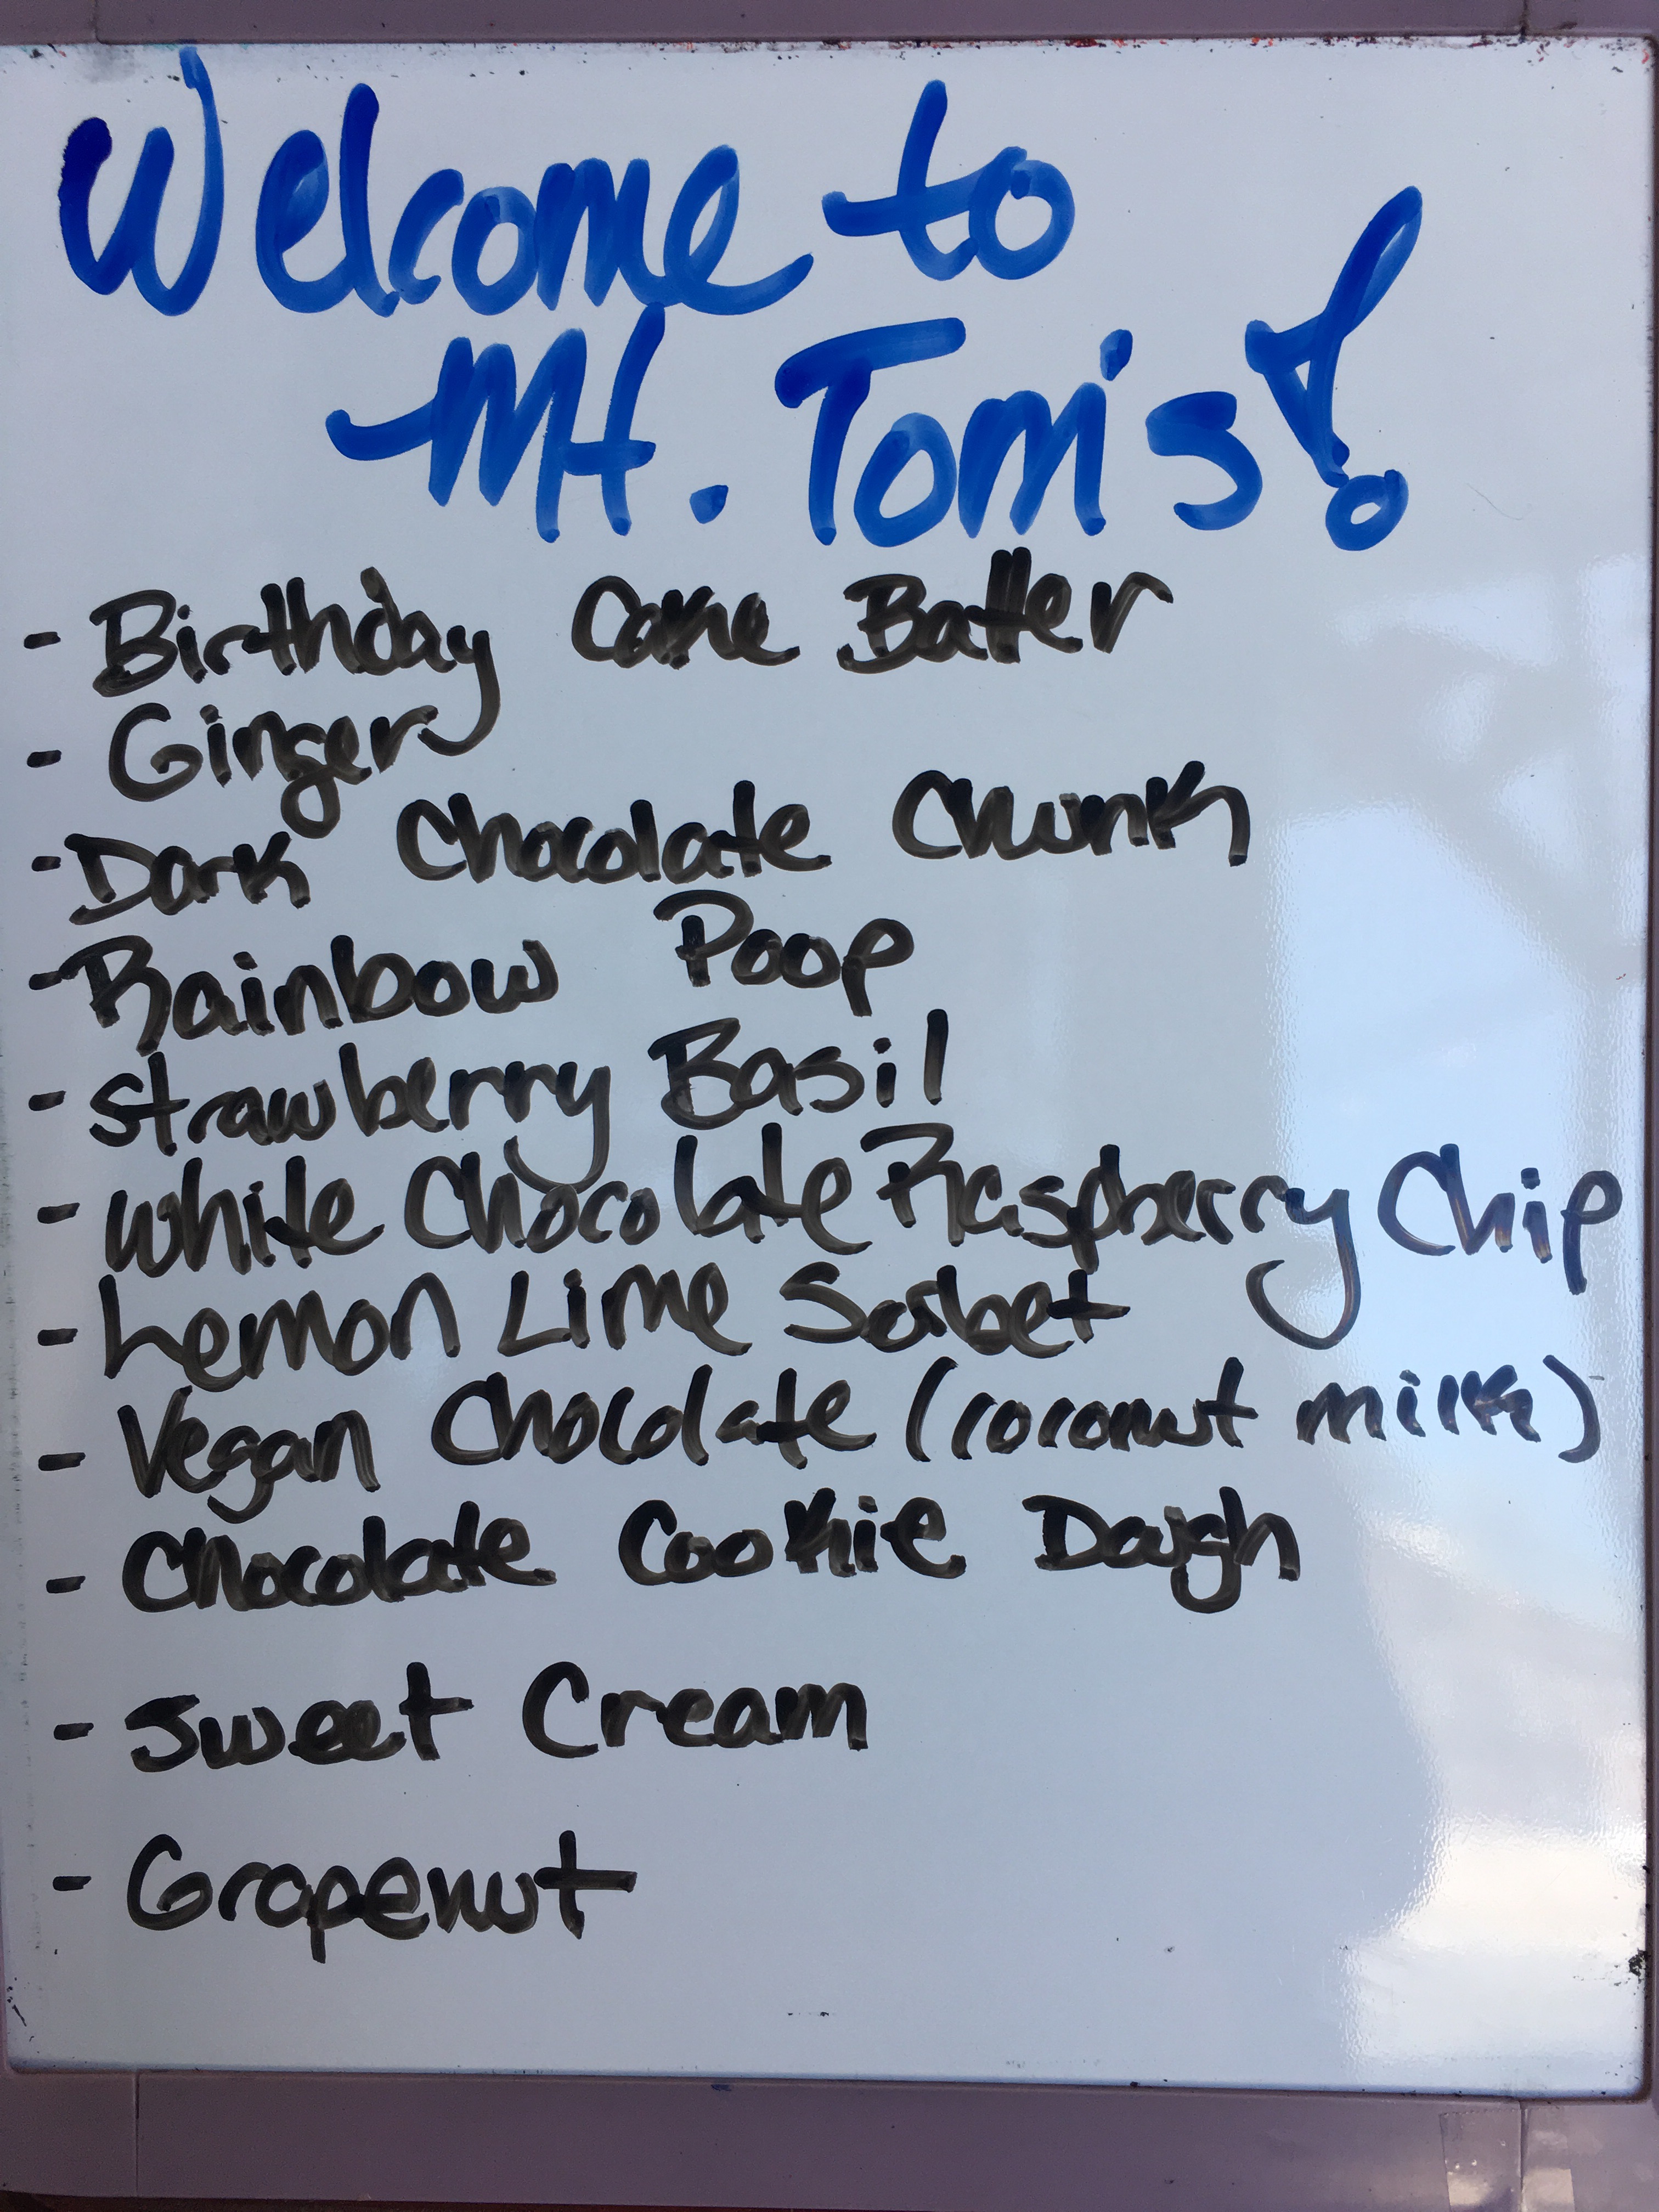 Welcome to
Mt. Tom's!
- Birthday Cake Batter
- Ginger
- Dark Chocolate Chunk
- Rainbow Poop
- Strawberry Basil
- White Chocolate Raspberry Chip
- Lemon Lime Sorbet
- Vegan Chocolate (coconut milk)
- Chocolate Cookie Dough
- Sweet Cream
- Grapenut